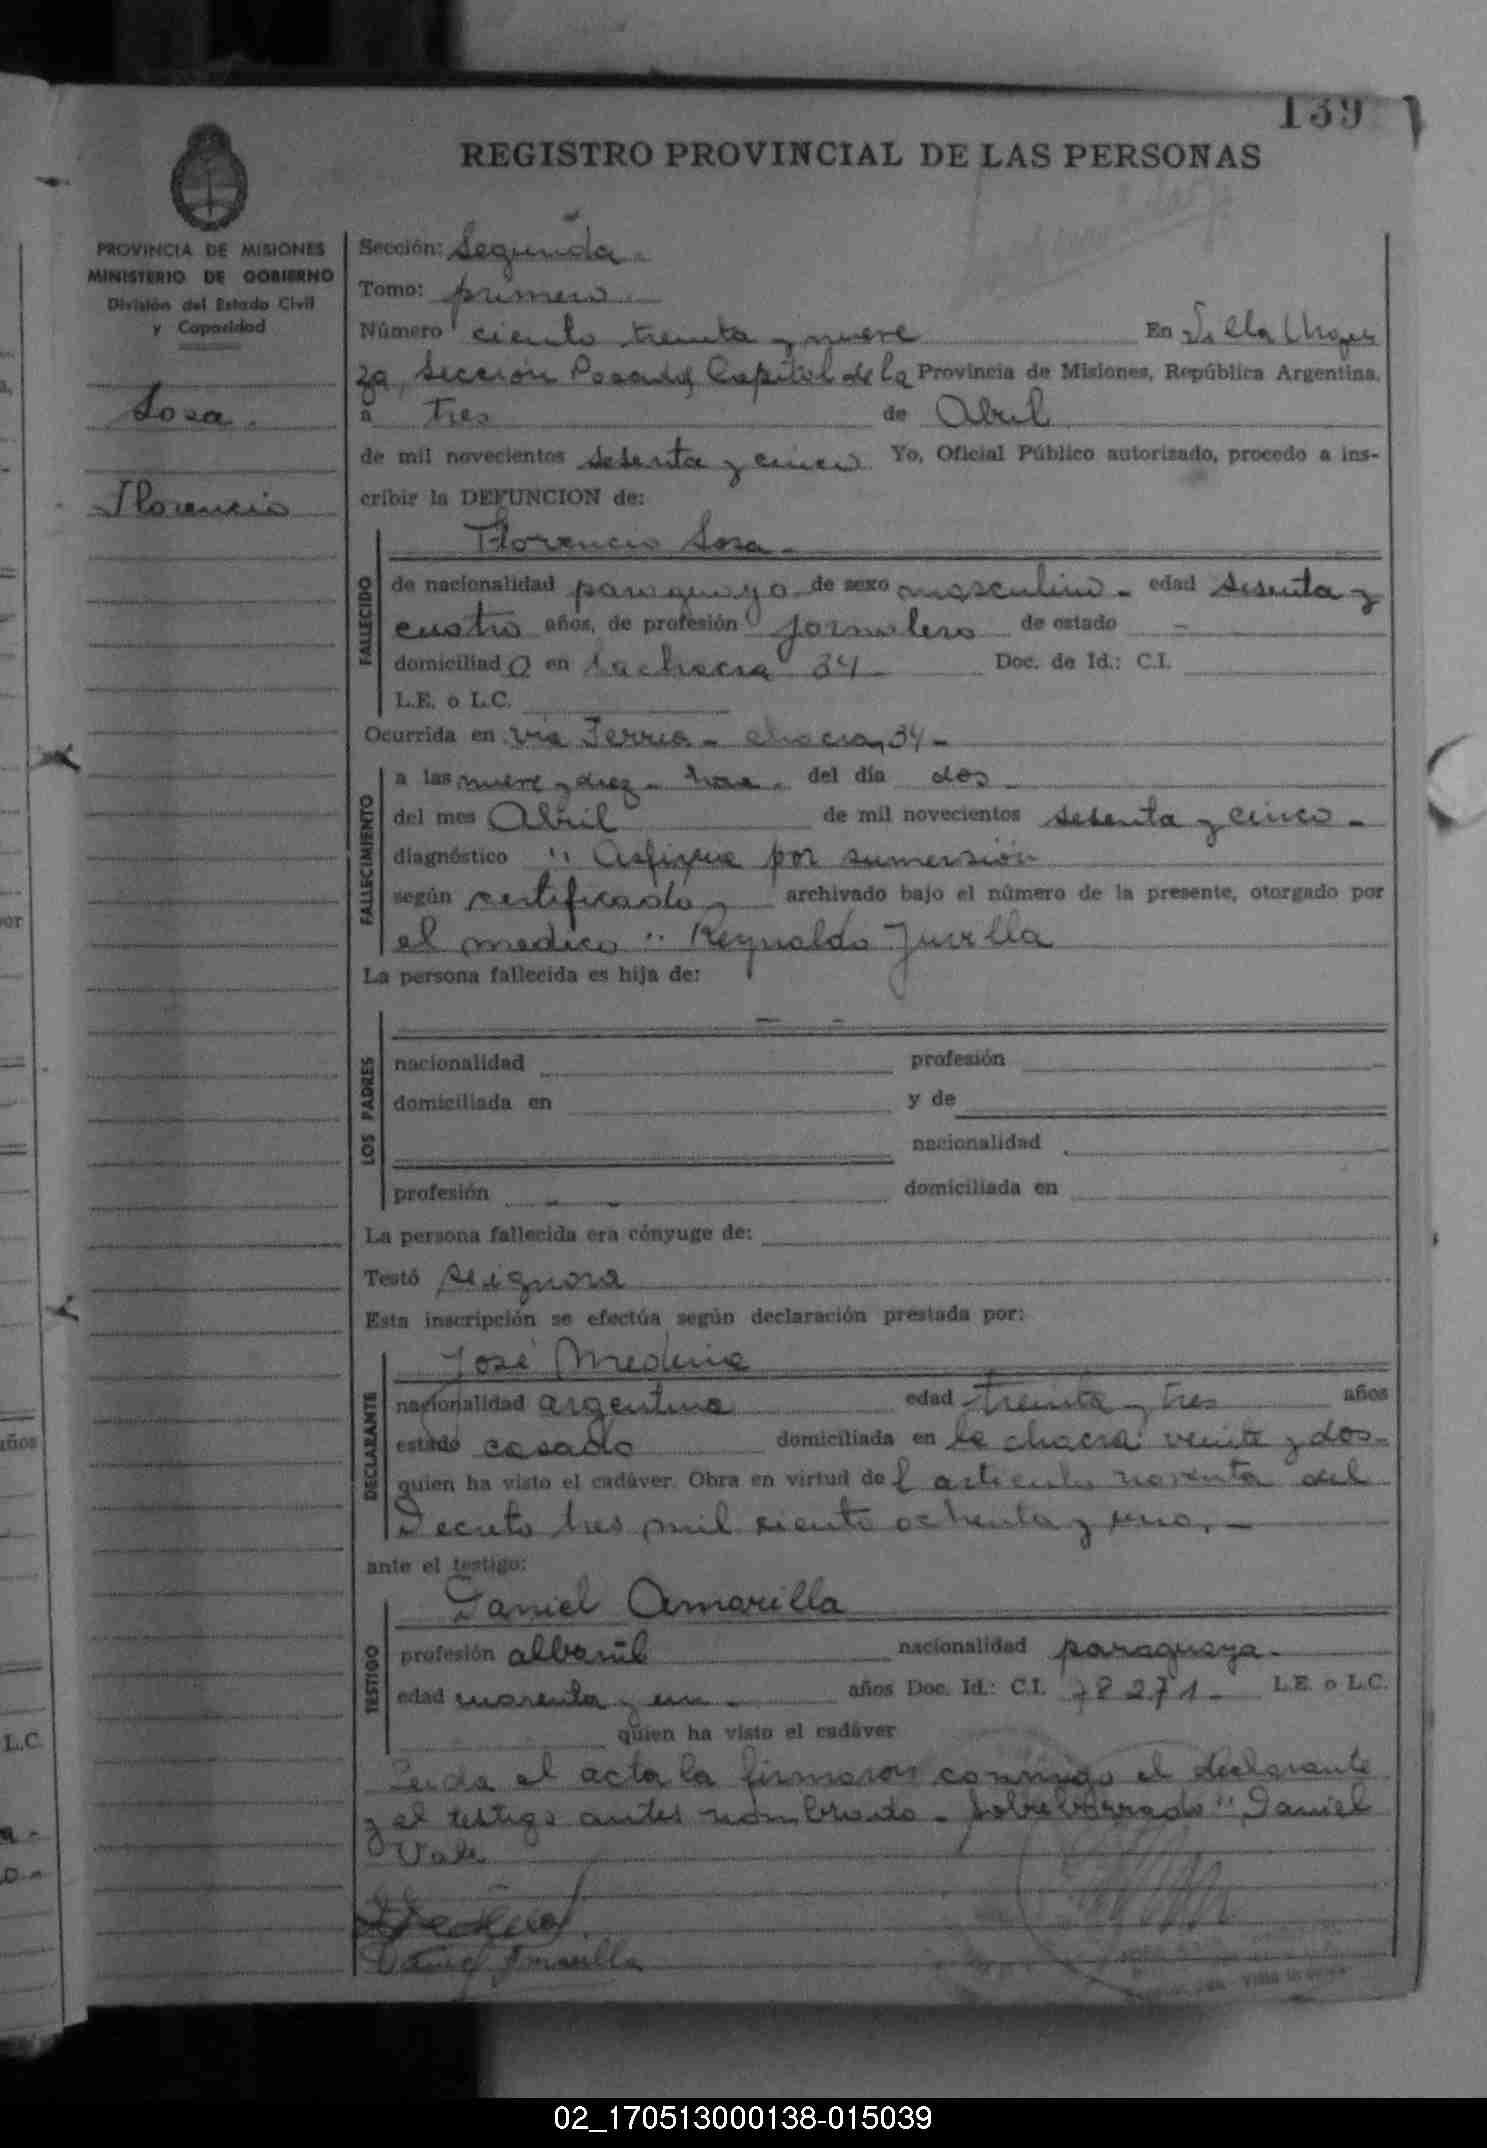 139
REGISTRO PROVINCIAL DE LAS PERSONAS
PROVINCIA DE MISIONES
MINISTERIO DE GOBIERNO
División del Estado Civil
y Capacidad
Sosa.
Florencio
Sección: Segunda.
Tomo: primero.
Número ciento treinta y nueve En Villa Urqui
za, Sección Posadas Capital de la Provincia de Misiones, República Argentina,
a tres de Abril
de mil novecientos sesenta y cinco Yo, Oficial Público autorizado, procedo a ins-
cribir la DEFUNCION de:
Florencio Sosa.
FALLECIDO
de nacionalidad paraguaya de sexo masculino. edad sesenta y
cuatro años, de profesión jornalero de estado -
domiciliado en la chacra 34 Doc. de Id.: C.I.
L.E. o L.C.
Ocurrida en via Ferrea - chacra 34-
FALLECIMIENTO
a las nueve y diez. horas. del día dos
del mes Abril de mil novecientos sesenta y cinco.
diagnóstico " Asfixia por sumersión
según certificado archivado bajo el número de la presente, otorgado por
el medico " Reynaldo
La persona fallecida es hija de:
- -
LOS PADRES
nacionalidad profesión
domiciliada en y de
nacionalidad
profesión - - domiciliada en
La persona fallecida era cónyuge de:
Testó se ignora
Esta inscripción se efectúa según declaración prestada por:
José Medina
DECLARANTE
nacionalidad argentina edad treinta y tres años
estado casado domiciliada en la chacra veinte y dos-
quien ha visto el cadáver. Obra en virtud del articulo noventa del
Decreto tres mil ciento ochenta y uno. -
ante el testigo:
Daniel Amarilla
TESTIGO
profesión albañil nacionalidad paraguaya.
edad cuarenta y un años Doc. Id.: C.I. 78271- L.E. o L.C.
quien ha visto el cadáver
Leida el acta la firmaron conmigo el declarante
y el testigo antes nombrado - Sobreborrado " Daniel
Vale
Daniel Amarilla
años
L.C.
02_170513000138-015039